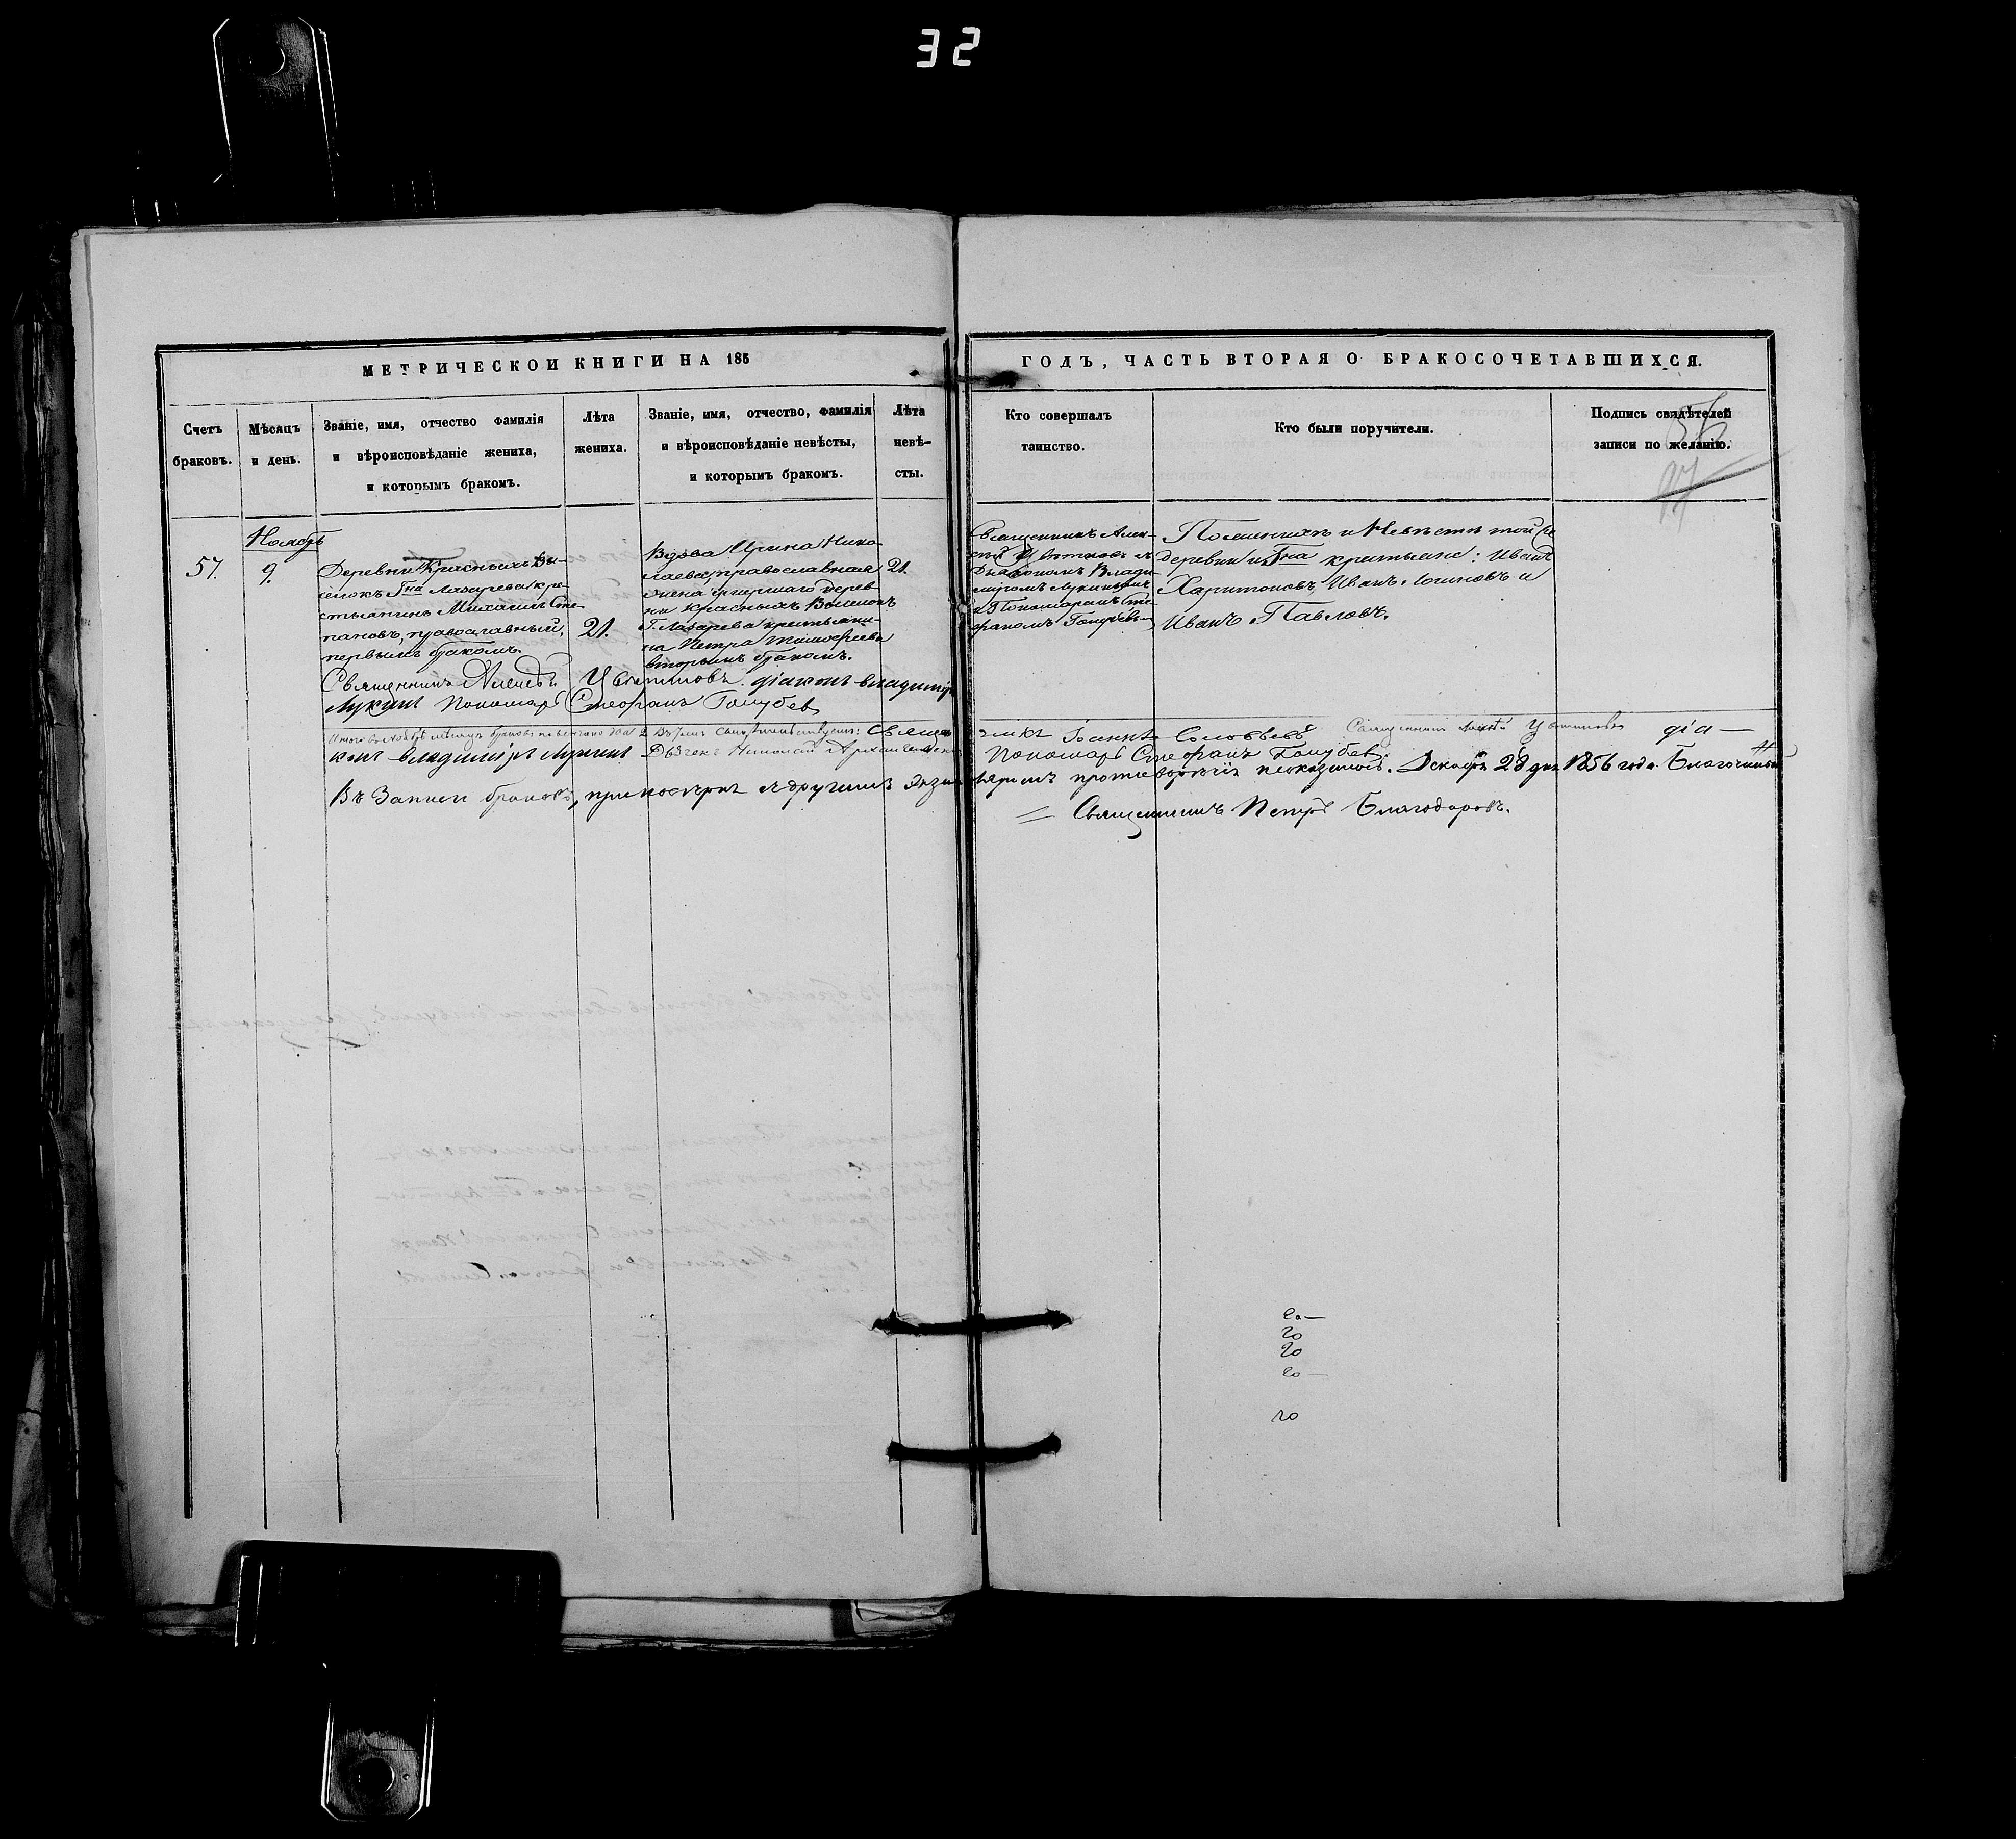 32
МЕТРИЧЕСКОЙ КНИГИ НА 185
ГОДЪ, ЧАСТЬ ВТОРАЯ О БРАКОСОЧЕТАВШИХСЯ.
Счетъ
браковъ.
Мѣсяцъ
и день.
Званіе, имя, отчество фамилія
и вѣроисповѣданіе жениха,
и которымъ бракомъ.
Лѣта
жениха.
Званіе, имя, отчество, фамилія
и вѣроисповѣданіе невѣсты,
и которымъ бракомъ.
Лѣта
невѣ-
сты.
Кто совершалъ
таинство.
Кто были поручители.
Подпись свидѣтелей
записи по желанію.
56
57.
Ноябрь
9.
Деревни Красныхъ Вы-
селокъ Гна Лазарева кре-
стьянинъ Михаилъ Сте-
пановъ, православный,
первымъ бракомъ.
21.
Вдова Ирина Нико-
лаева, православная
жена умершаго дерев-
ни Красныхъ Выселокъ
Г. Лазарева крестьяни-
на Петра Тимофеева
вторымъ бракомъ.
21.
Священникъ Алек-
сѣй Цвѣтковъ съ
Діакономъ Влади-
міромъ Лукинымъ
и Пономаремъ Сте-
фаномъ Голубевы-
По женихѣ и Невѣстѣ той же
деревни и Гна крестьяне: Иванъ
Харитоновъ, Иванъ Логиновъ и
Иванъ Павловъ.
Священникъ Алексѣй Цвѣтковъ. діаконъ владиміръ
Лукинъ Пономарь Стефанъ Голубев
Итого въ Ноябрѣ мѣсяцѣ браковъ два 2 Свяще
нникъ Іоаннъ Соловьевъ Священникъ Алексѣй Цвѣтковъ діа-
конъ владиміръ лукинъ Дьячекъ Николай Пономарь Стефанъ Голубев
Въ Записи браковъ, по повѣркѣ съ другими экзем
плярами противорѣчія не оказалось. Декабря 28 дня 1856 года. Благочинный
Священникъ Петръ Благодаровъ.
20
20
20
20
20